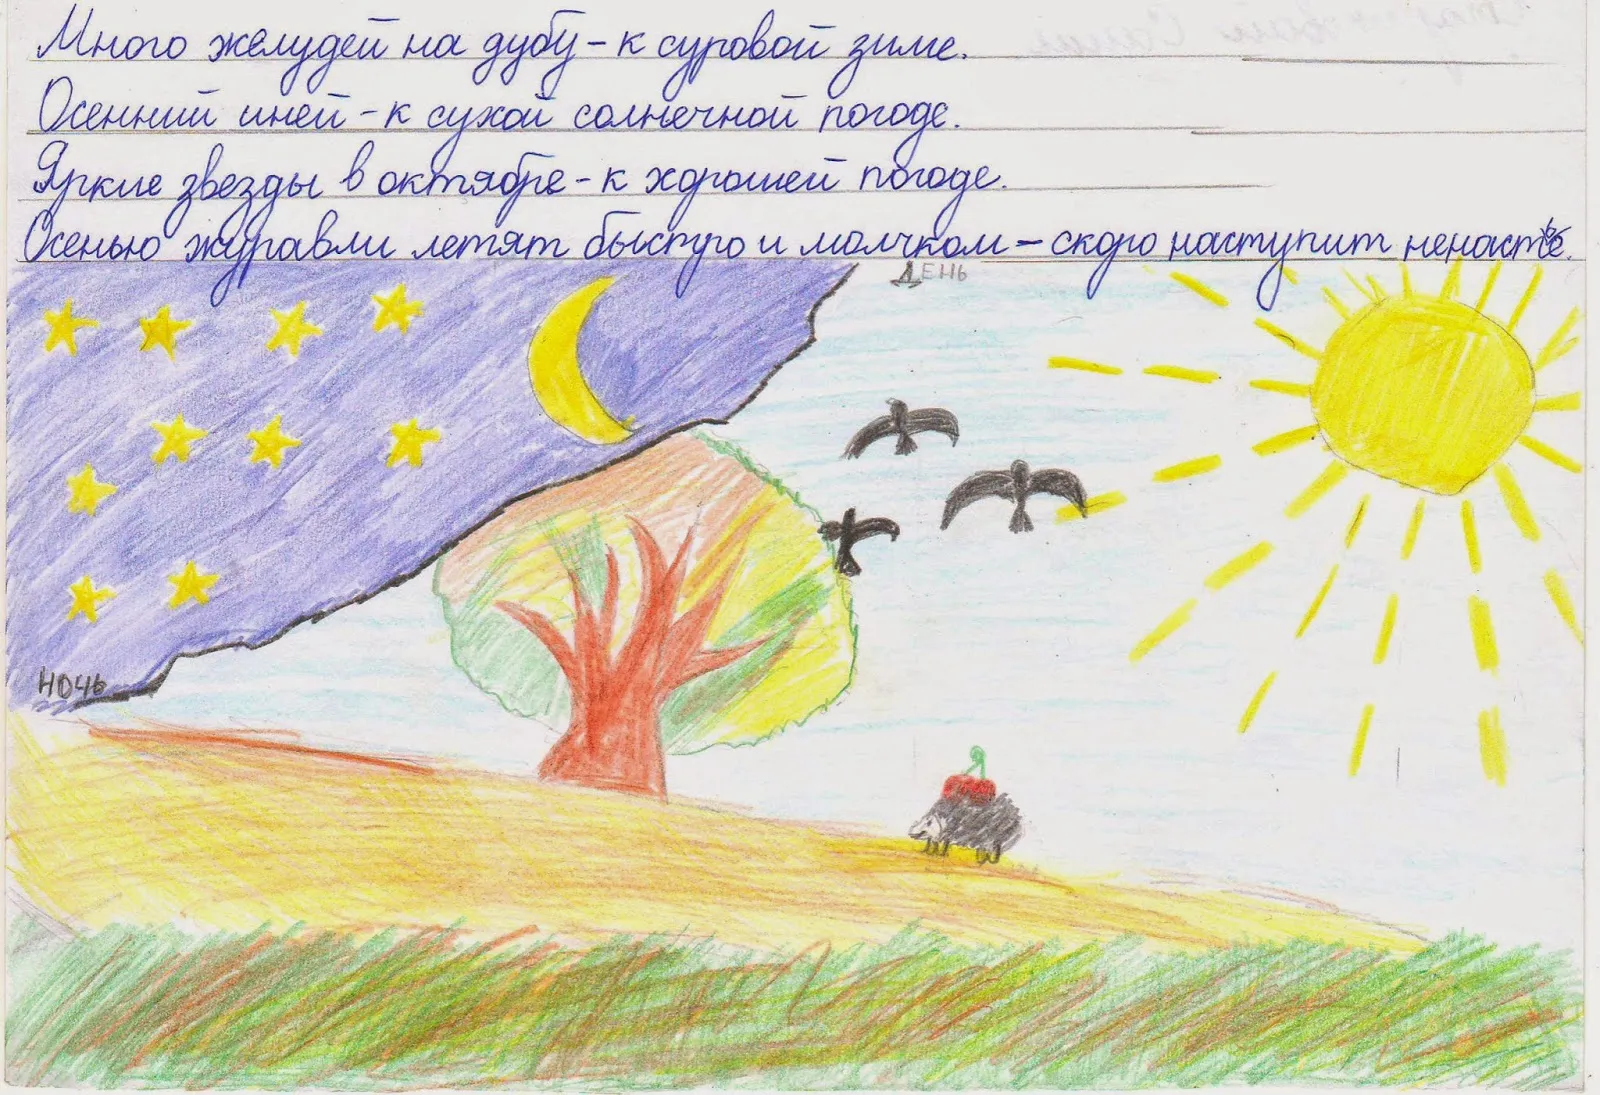 Много желудей на дубу – к суровой зиме.
Осенний иней – к сухой солнечной погоде.
Яркие звезды в октябре – к хорошей погоде.
Осенью журавли летят быстро и молчком – скоро наступит ненастье.
ДЕНЬ
НОЧЬ